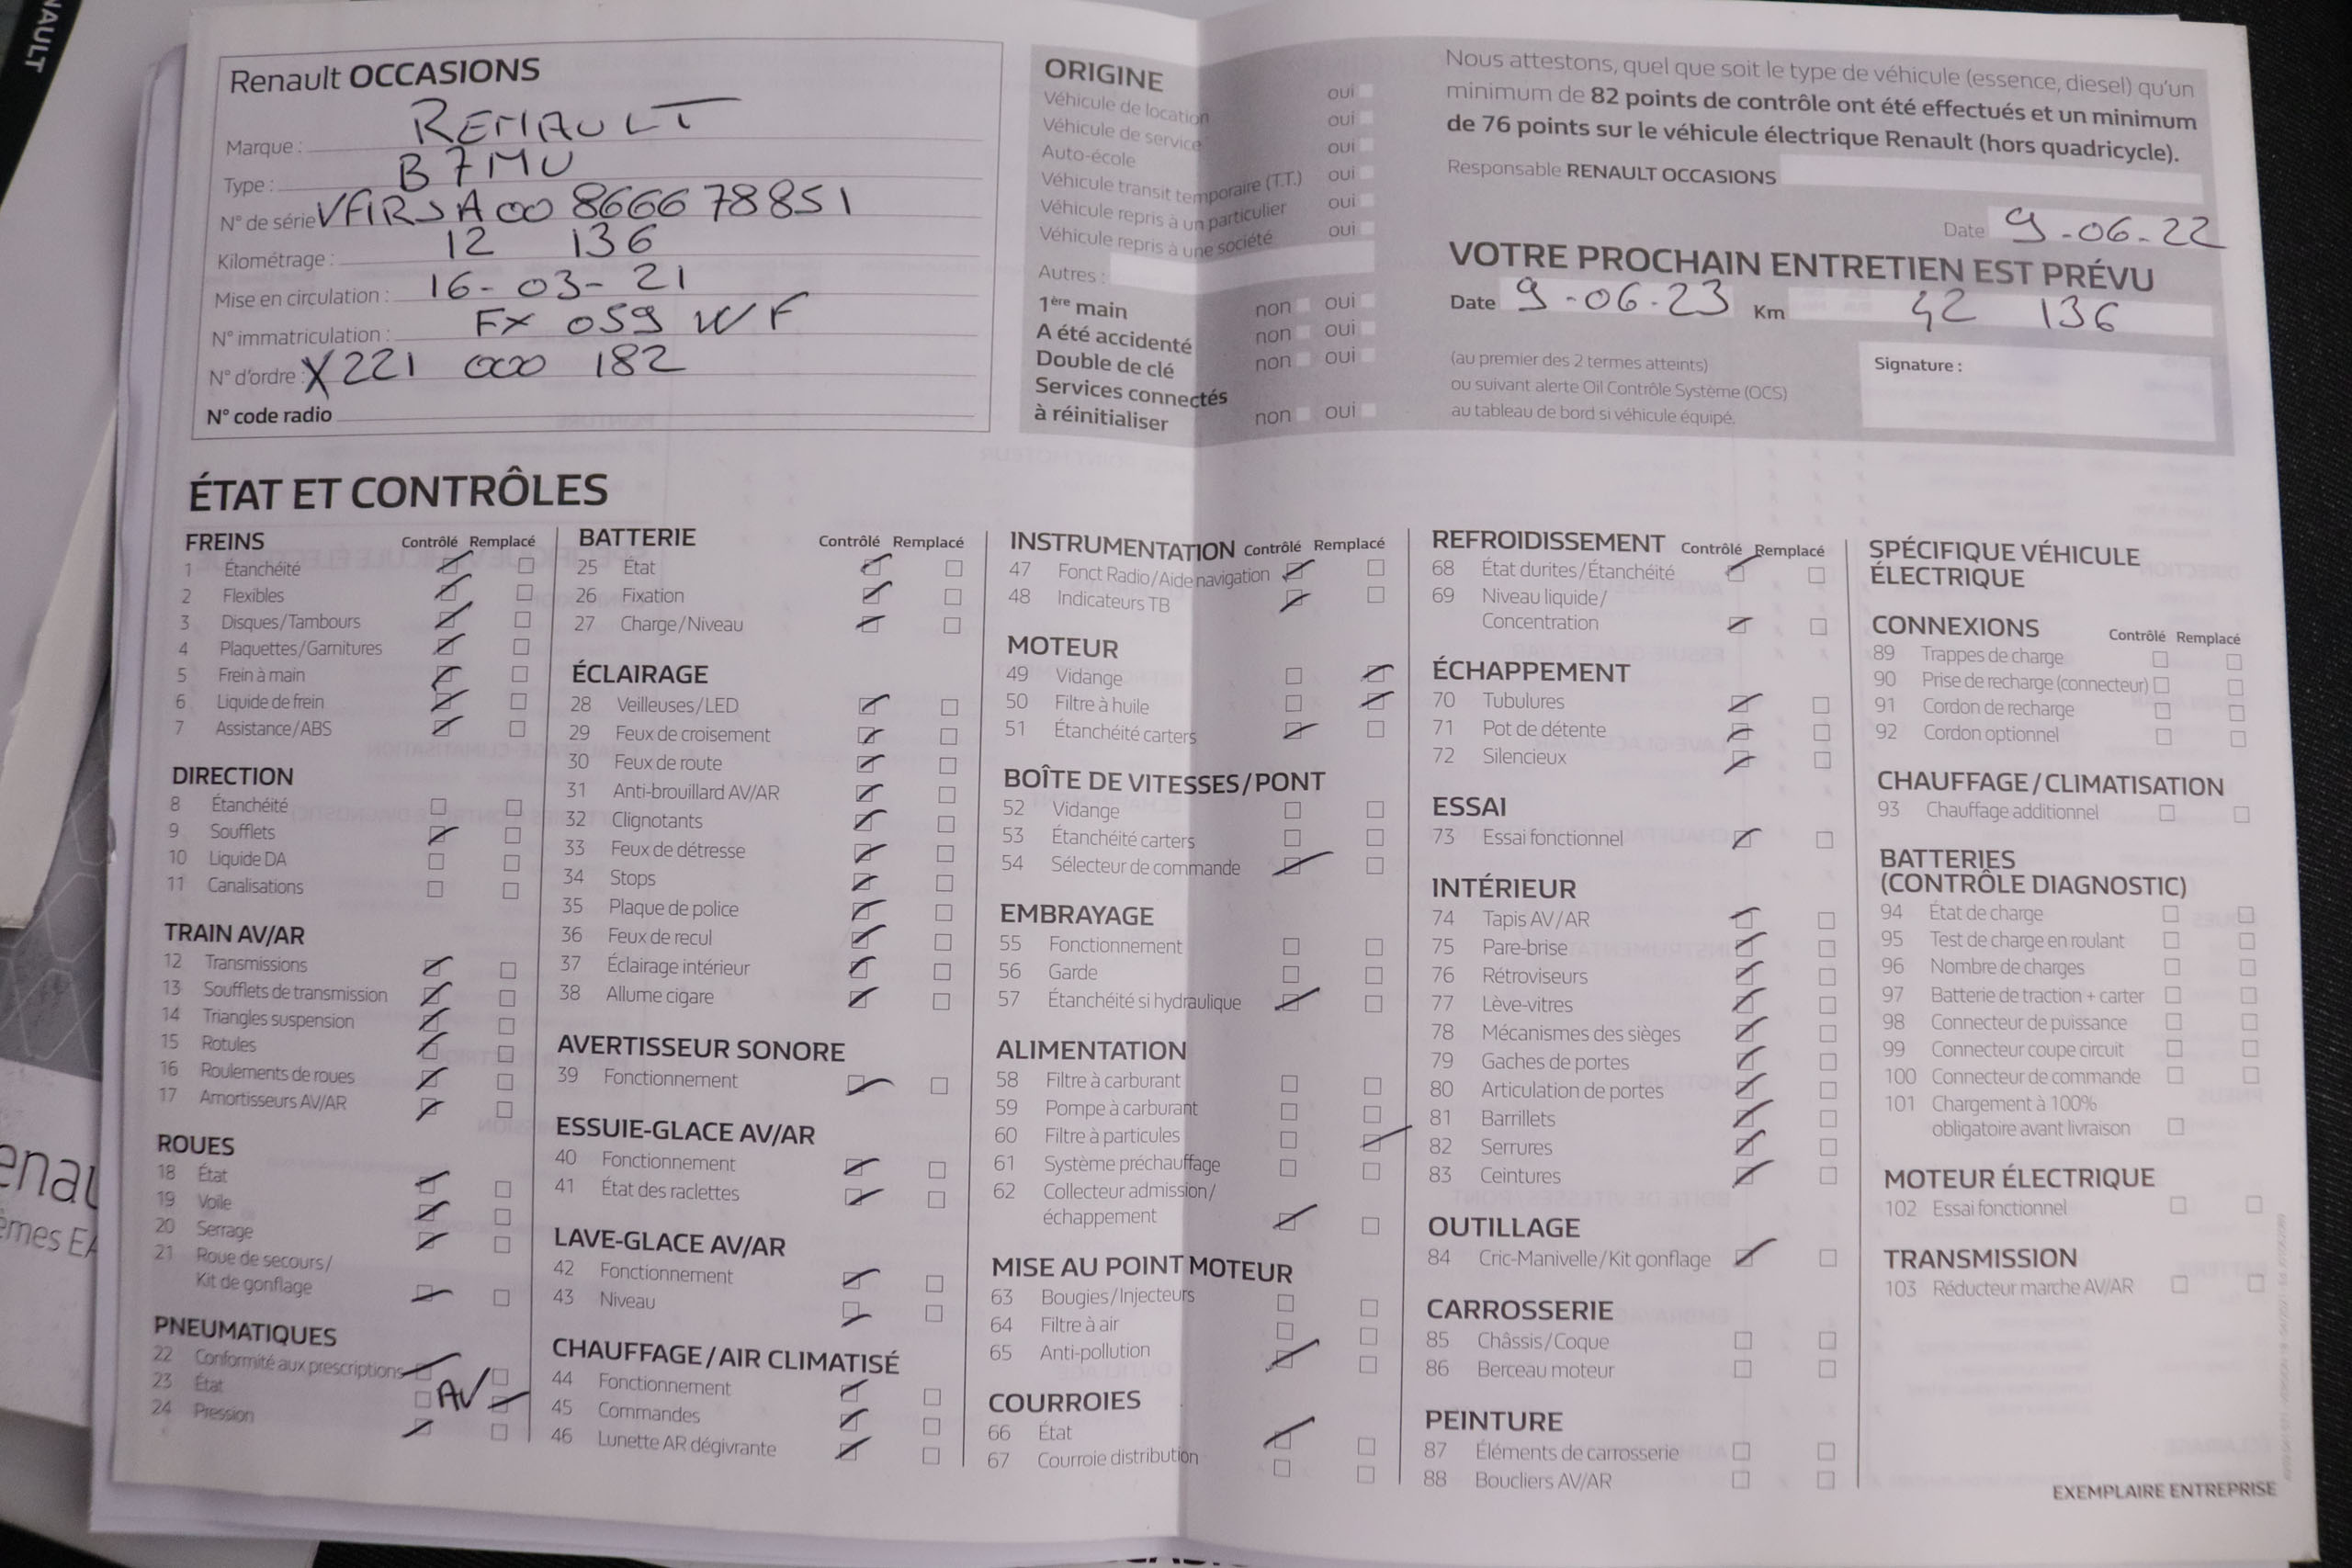 NAULT
Renault OCCASIONS
Marque : RENAULT
Type : B7MU
N° de série VF1RJA00 866678851
Kilométrage : 12 136
Mise en circulation : 16-03-21
N° immatriculation : FX 059 WF
N° d'ordre : X221 000 182
N° code radio
ORIGINE
Véhicule de location oui
Véhicule de service oui
Auto-école oui
Véhicule transit temporaire (T.T.) oui
Véhicule repris à un particulier oui
Véhicule repris à une société oui
Autres :
1ère main non oui
A été accidenté non oui
Double de clé non oui
Services connectés
à réinitialiser non oui
Nous attestons, quel que soit le type de véhicule (essence, diesel) qu'un
minimum de 82 points de contrôle ont été effectués et un minimum
de 76 points sur le véhicule électrique Renault (hors quadricycle).
Responsable RENAULT OCCASIONS
Date 9-06-22
VOTRE PROCHAIN ENTRETIEN EST PRÉVU
Date 9-06-23 Km 42 136
(au premier des 2 termes atteints)
ou suivant alerte Oil Contrôle Système (OCS)
au tableau de bord si véhicule équipé.
Signature :
ÉTAT ET CONTRÔLES
FREINS Contrôlé Remplacé
1 Étanchéité
2 Flexibles
3 Disques/Tambours
4 Plaquettes/Garnitures
5 Frein à main
6 Liquide de frein
7 Assistance/ABS
DIRECTION
8 Étanchéité
9 Soufflets
10 Liquide DA
11 Canalisations
TRAIN AV/AR
12 Transmissions
13 Soufflets de transmission
14 Triangles suspension
15 Rotules
16 Roulements de roues
17 Amortisseurs AV/AR
ROUES
18 État
19 Voile
20 Serrage
21 Roue de secours/
Kit de gonflage
PNEUMATIQUES
22 Conformité aux prescriptions
23 État AV
24 Pression
BATTERIE Contrôlé Remplacé
25 État
26 Fixation
27 Charge/Niveau
ÉCLAIRAGE
28 Veilleuses/LED
29 Feux de croisement
30 Feux de route
31 Anti-brouillard AV/AR
32 Clignotants
33 Feux de détresse
34 Stops
35 Plaque de police
36 Feux de recul
37 Éclairage intérieur
38 Allume cigare
AVERTISSEUR SONORE
39 Fonctionnement
ESSUIE-GLACE AV/AR
40 Fonctionnement
41 État des raclettes
LAVE-GLACE AV/AR
42 Fonctionnement
43 Niveau
CHAUFFAGE/AIR CLIMATISÉ
44 Fonctionnement
45 Commandes
46 Lunette AR dégivrante
INSTRUMENTATION Contrôlé Remplacé
47 Fonct Radio/Aide navigation
48 Indicateurs TB
MOTEUR
49 Vidange
50 Filtre à huile
51 Étanchéité carters
BOÎTE DE VITESSES/PONT
52 Vidange
53 Étanchéité carters
54 Sélecteur de commande
EMBRAYAGE
55 Fonctionnement
56 Garde
57 Étanchéité si hydraulique
ALIMENTATION
58 Filtre à carburant
59 Pompe à carburant
60 Filtre à particules
61 Système préchauffage
62 Collecteur admission/
échappement
MISE AU POINT MOTEUR
63 Bougies/Injecteurs
64 Filtre à air
65 Anti-pollution
COURROIES
66 État
67 Courroie distribution
REFROIDISSEMENT Contrôlé Remplacé
68 État durites/Étanchéité
69 Niveau liquide/
Concentration
ÉCHAPPEMENT
70 Tubulures
71 Pot de détente
72 Silencieux
ESSAI
73 Essai fonctionnel
INTÉRIEUR
74 Tapis AV/AR
75 Pare-brise
76 Rétroviseurs
77 Lève-vitres
78 Mécanismes des sièges
79 Gaches de portes
80 Articulation de portes
81 Barrillets
82 Serrures
83 Ceintures
OUTILLAGE
84 Cric-Manivelle/Kit gonflage
CARROSSERIE
85 Châssis/Coque
86 Berceau moteur
PEINTURE
87 Éléments de carrosserie
88 Boucliers AV/AR
SPÉCIFIQUE VÉHICULE
ÉLECTRIQUE
CONNEXIONS Contrôlé Remplacé
89 Trappes de charge
90 Prise de recharge (connecteur)
91 Cordon de recharge
92 Cordon optionnel
CHAUFFAGE/CLIMATISATION
93 Chauffage additionnel
BATTERIES
(CONTRÔLE DIAGNOSTIC)
94 État de charge
95 Test de charge en roulant
96 Nombre de charges
97 Batterie de traction + carter
98 Connecteur de puissance
99 Connecteur coupe circuit
100 Connecteur de commande
101 Chargement à 100%
obligatoire avant livraison
MOTEUR ÉLECTRIQUE
102 Essai fonctionnel
TRANSMISSION
103 Réducteur marche AV/AR
EXEMPLAIRE ENTREPRISE